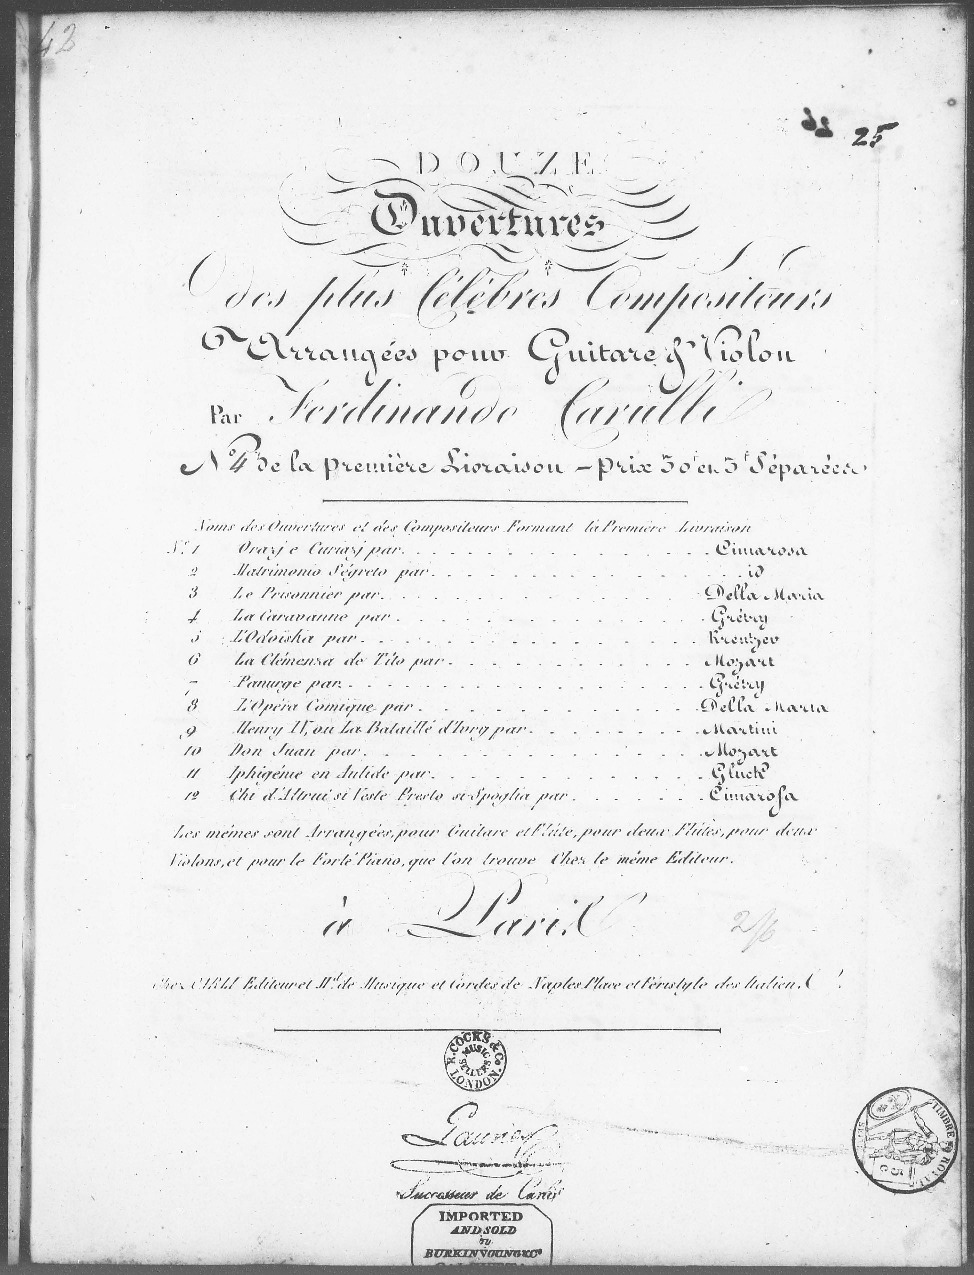 42
25
DOUZE
Ouvertures
des plus Célèbres Compositeurs
Arrangées pour Guitare & Violon
Par Ferdinando Carulli
N.º 4 de la première Livraison – prix 30f en 3f Séparées
Noms des Ouvertures et des Compositeurs Formant la Première Livraison
N.º 1 Orazj e Curiazj par Cimarosa
2 Matrimonio Ségreto par id
3 Le Prisonnier par Della Maria
4 La Caravanne par Grétry
5 L'Odoiska par Kreutzer
6 La Clémenza de Tito par Mozart
7 Panurge par Grétry
8 L'Opéra Comique par Della Maria
9 Henry IV, ou La Bataille d'Ivry par Martini
10 Don Juan par Mozart
11 Iphigénie en Aulide par Gluck
12 Chi d'Altrui si Veste Presto si Spoglia par Cimarosa
Les mêmes sont Arrangées, pour Guitare et Flûte, pour deux Flûtes, pour deux
Violons, et pour le Forté Piano, que l'on trouve Chez le même Editeur.
à Paris
2/6
Chez CARLI Editeur et Md. de Musique et Cordes de Naples Place et Péristyle des Italiens
R. COCKS & Co.
MUSIC
SELLERS
LONDON.
Successeur de Carli
TIMBRE ROYAL
IMPORTED
AND SOLD
by
BURKINYOUNG & Co
CALCUTTA